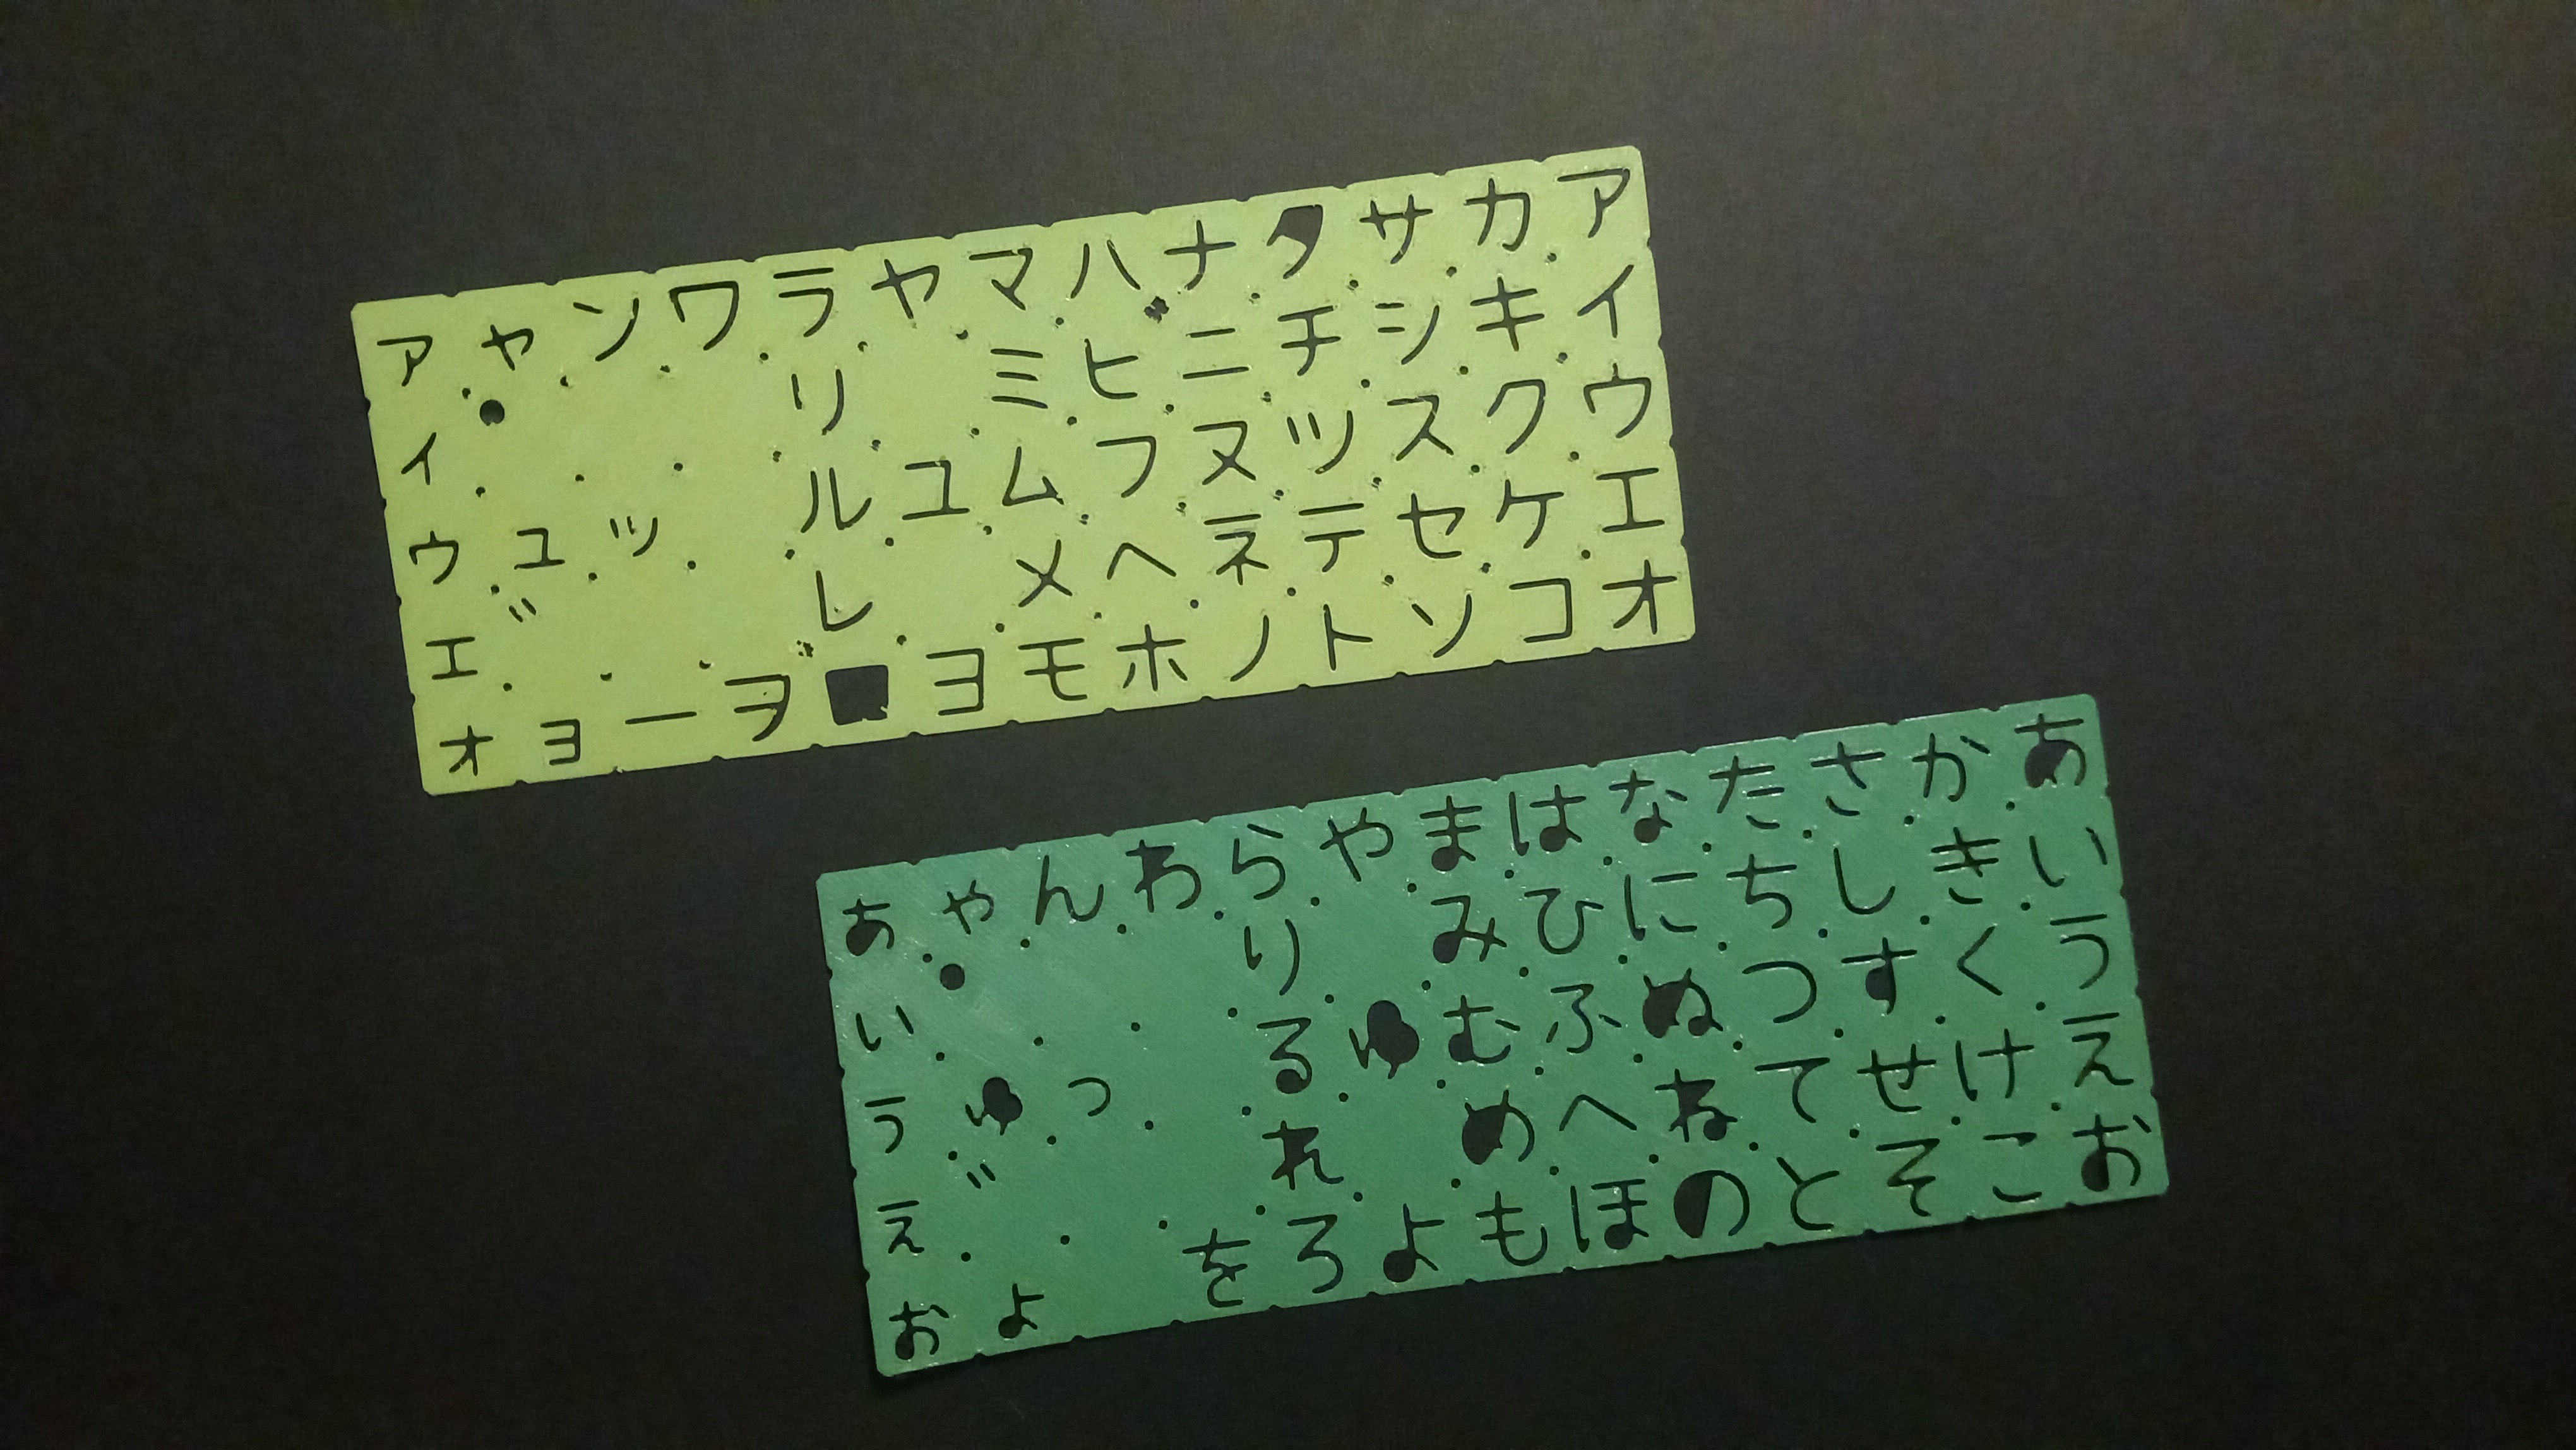 アイウエオ
カキクケコ
サシスセソ
タチツテト
ナニヌネノ
ハヒフヘホ
マミムメモ
ヤユヨ
ラリルレロ
ワヲ
ンッー
ャ゜ュ゛ョ
ァィゥェォ
あいうえお
かきくけこ
さしすせそ
たちつてと
なにぬねの
はひふへほ
まみむめも
やゆよ
らりるれろ
わを
んっ
ゃ゜ゅ゛ょ
ぁぃぅぇぉ